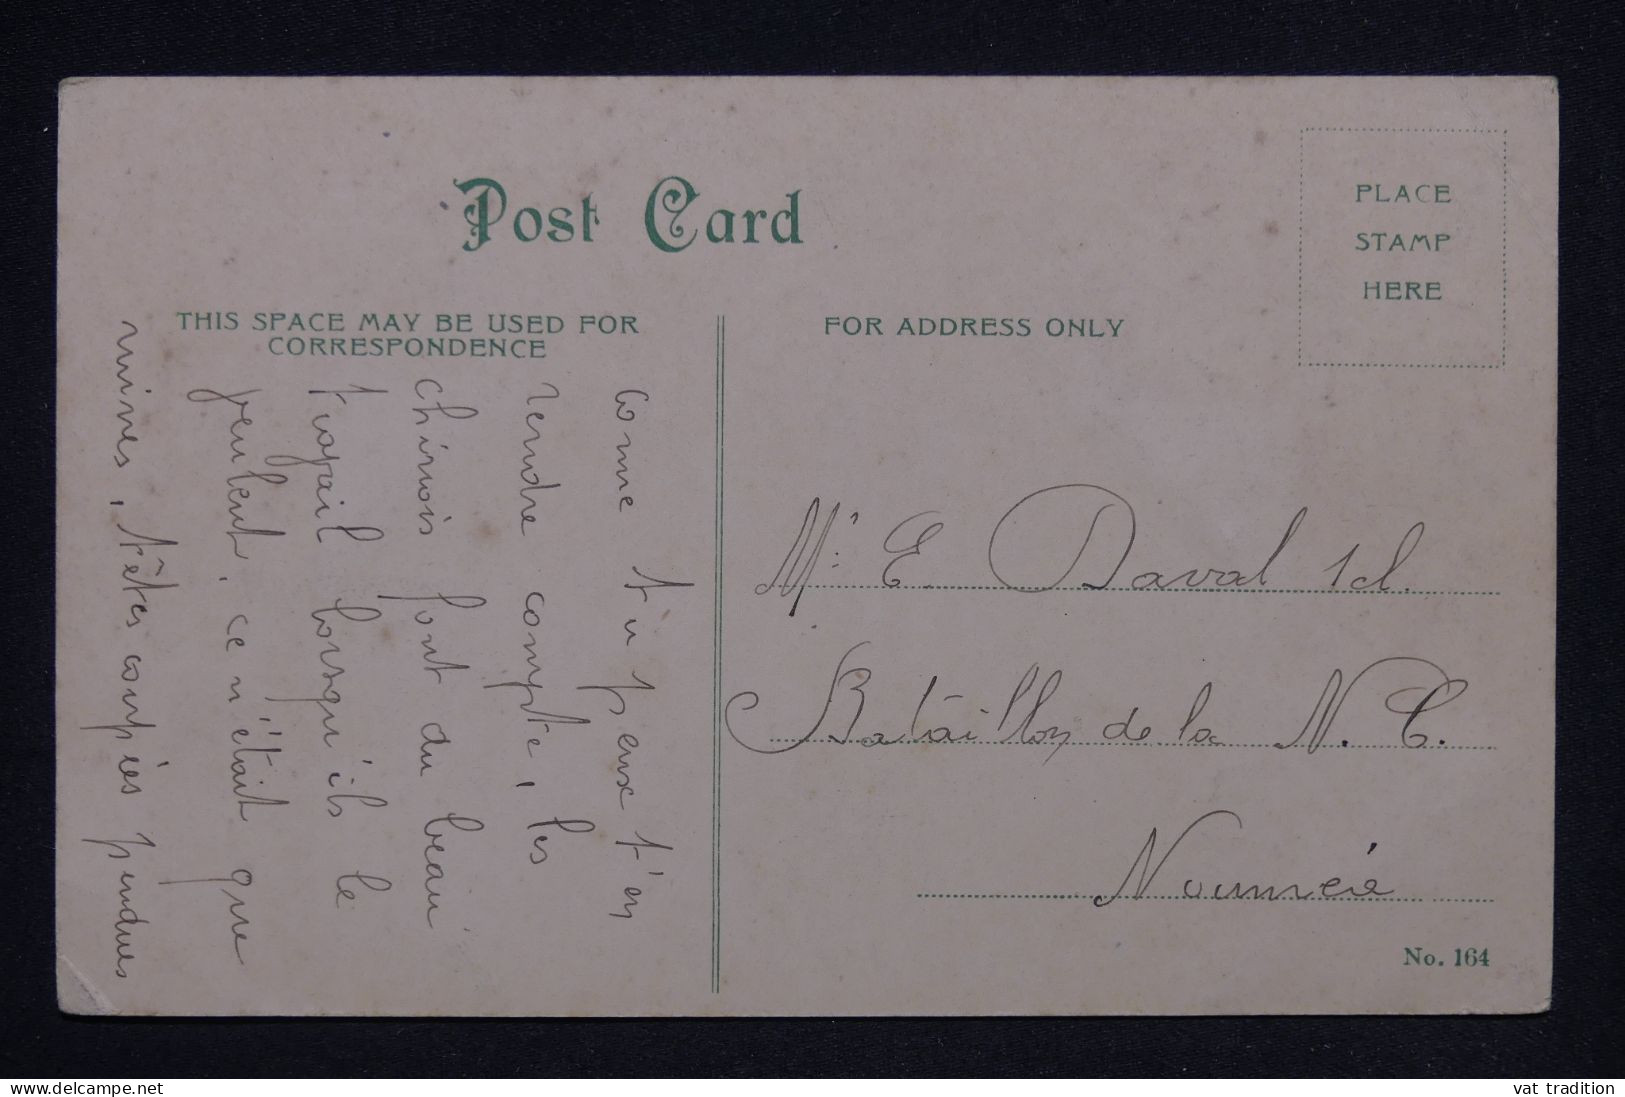 Post Card
PLACE
STAMP
HERE
THIS SPACE MAY BE USED FOR
CORRESPONDENCE
FOR ADDRESS ONLY
come tu peux t'en
rendre compte, les
chinois font du beau
travail lorsqu'ils le
veulent, ce n'était que
ruines, têtes coupées pendues
Mr. E. Daval 1cl.
Bataillon de la N. C.
Nouméa
No. 164
www.delcampe.net
vat tradition